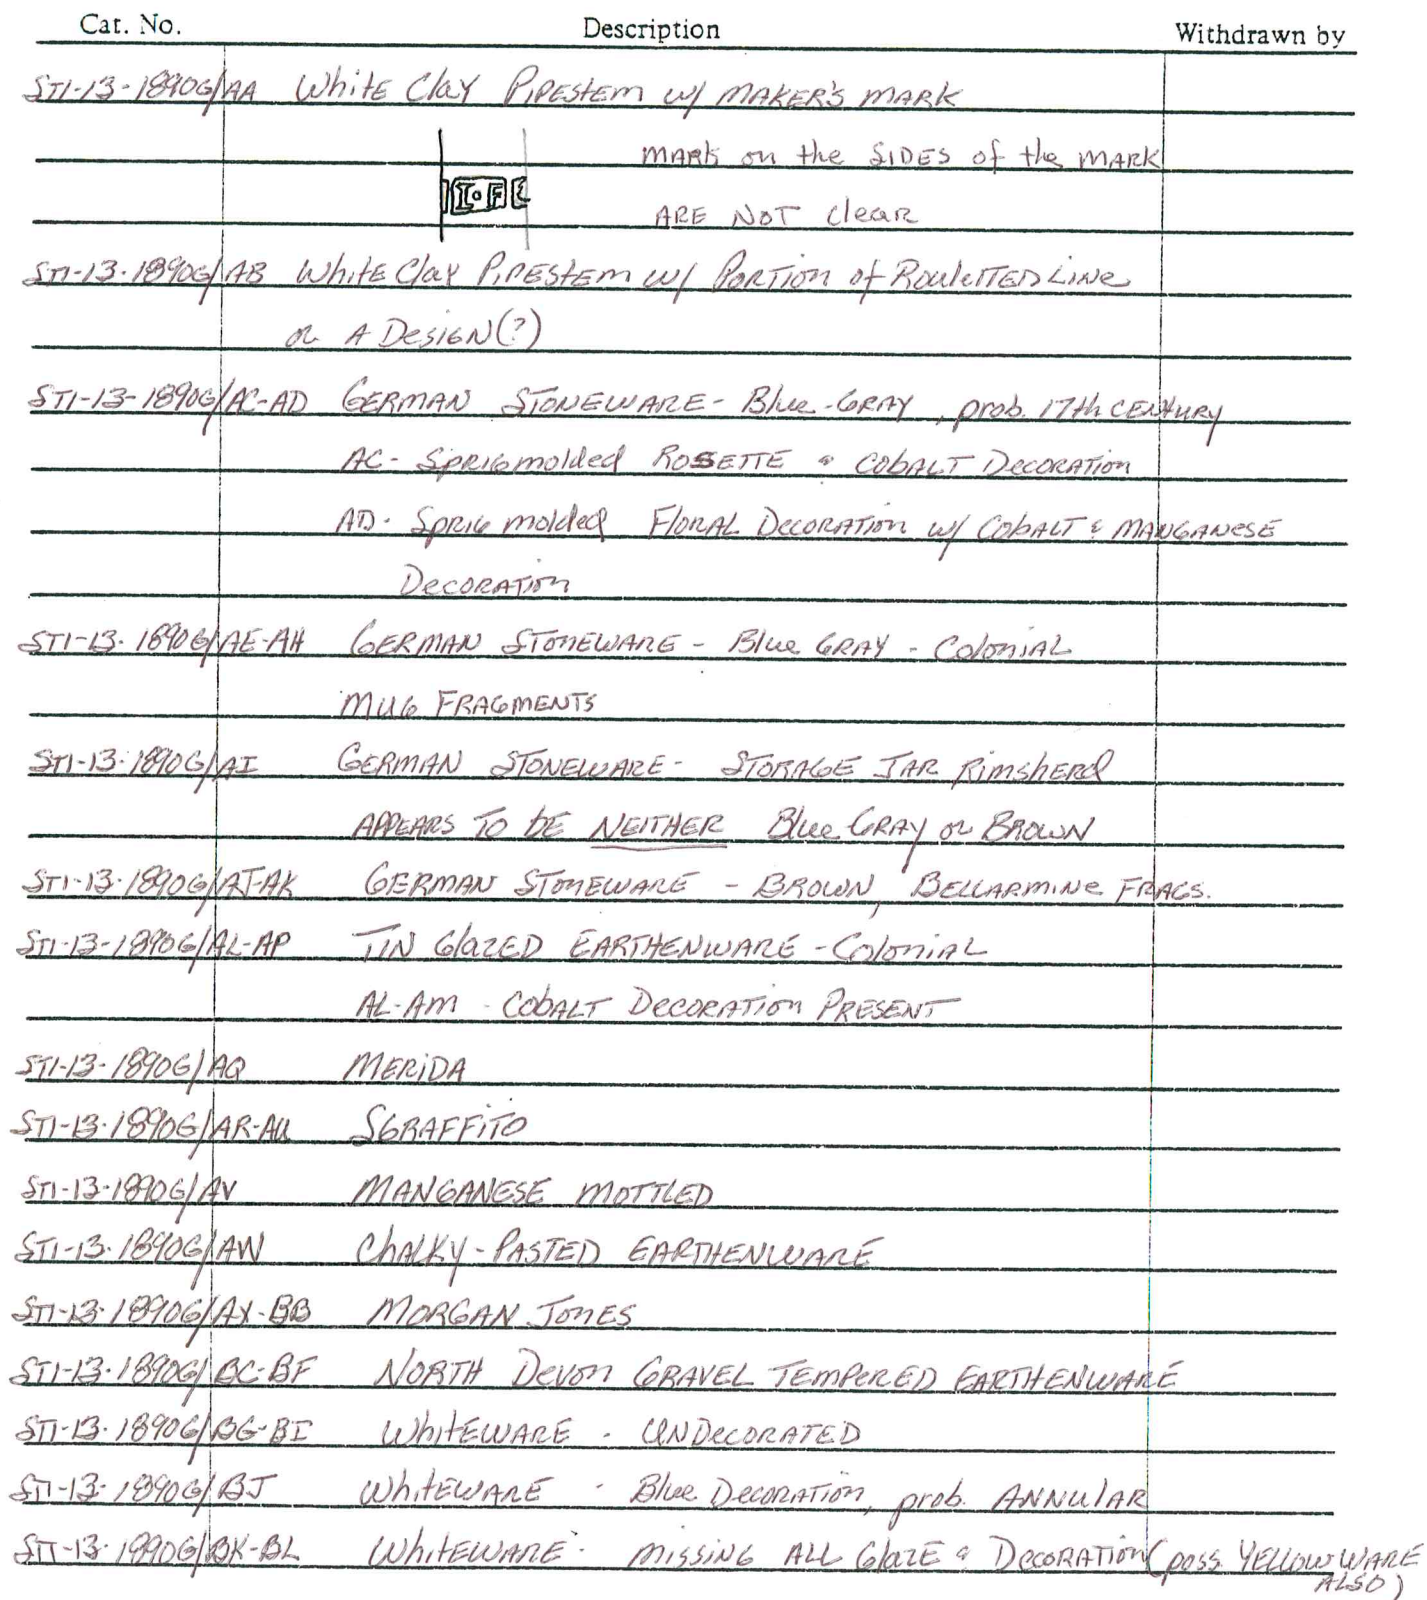 Cat. No. Description Withdrawn by
ST1-13-1890G/AA White Clay Pipestem w/ MAKER'S MARK
MARK on the SIDES of the MARK
I·F
ARE NOT clear
ST1-13-1890G/AB White Clay Pipestem w/ Portion of Rouletted Line
or A Design(?)
ST1-13-1890G/AC-AD GERMAN STONEWARE - Blue-GRAY, prob. 17th CENTURY
AC- Sprigmolded ROSETTE & COBALT Decoration
AD- Sprig molded Floral Decoration w/ Cobalt & MANGANESE
Decoration
ST1-13-1890G/AE-AH GERMAN STONEWARE - Blue GRAY - Colonial
MUG FRAGMENTS
ST1-13-1890G/AI GERMAN STONEWARE - STORAGE JAR Rimsherd
APPEARS TO bE NEITHER Blue GRAY or BROWN
ST1-13-1890G/AJ-AK GERMAN STONEWARE - BROWN, BELLARMINE FRAGS.
ST1-13-1890G/AL-AP TIN GlAZED EARTHENWARE - Colonial
AL-AM - CobALT Decoration PRESENT
ST1-13-1890G/AQ MERIDA
ST1-13-1890G/AR-AU SGRAFFITO
ST1-13-1890G/AV MANGANESE MOTTLED
ST1-13-1890G/AW ChALKY-PASTED EARTHENWARE
ST1-13-1890G/AX-BB MORGAN JONES
ST1-13-1890G/BC-BF NORTH Devon GRAVEL TEMPERED EARTHENWARE
ST1-13-1890G/BG-BI WhiTEWARE - UNDecORATED
ST1-13-1890G/BJ WhiTEWARE - Blue Decoration, prob. ANNulAR
ST1-13-1890G/BK-BL WhiTEWARE - MISSING ALL GlAZE & Decoration (poss. YELLOWWARE
ALSO)